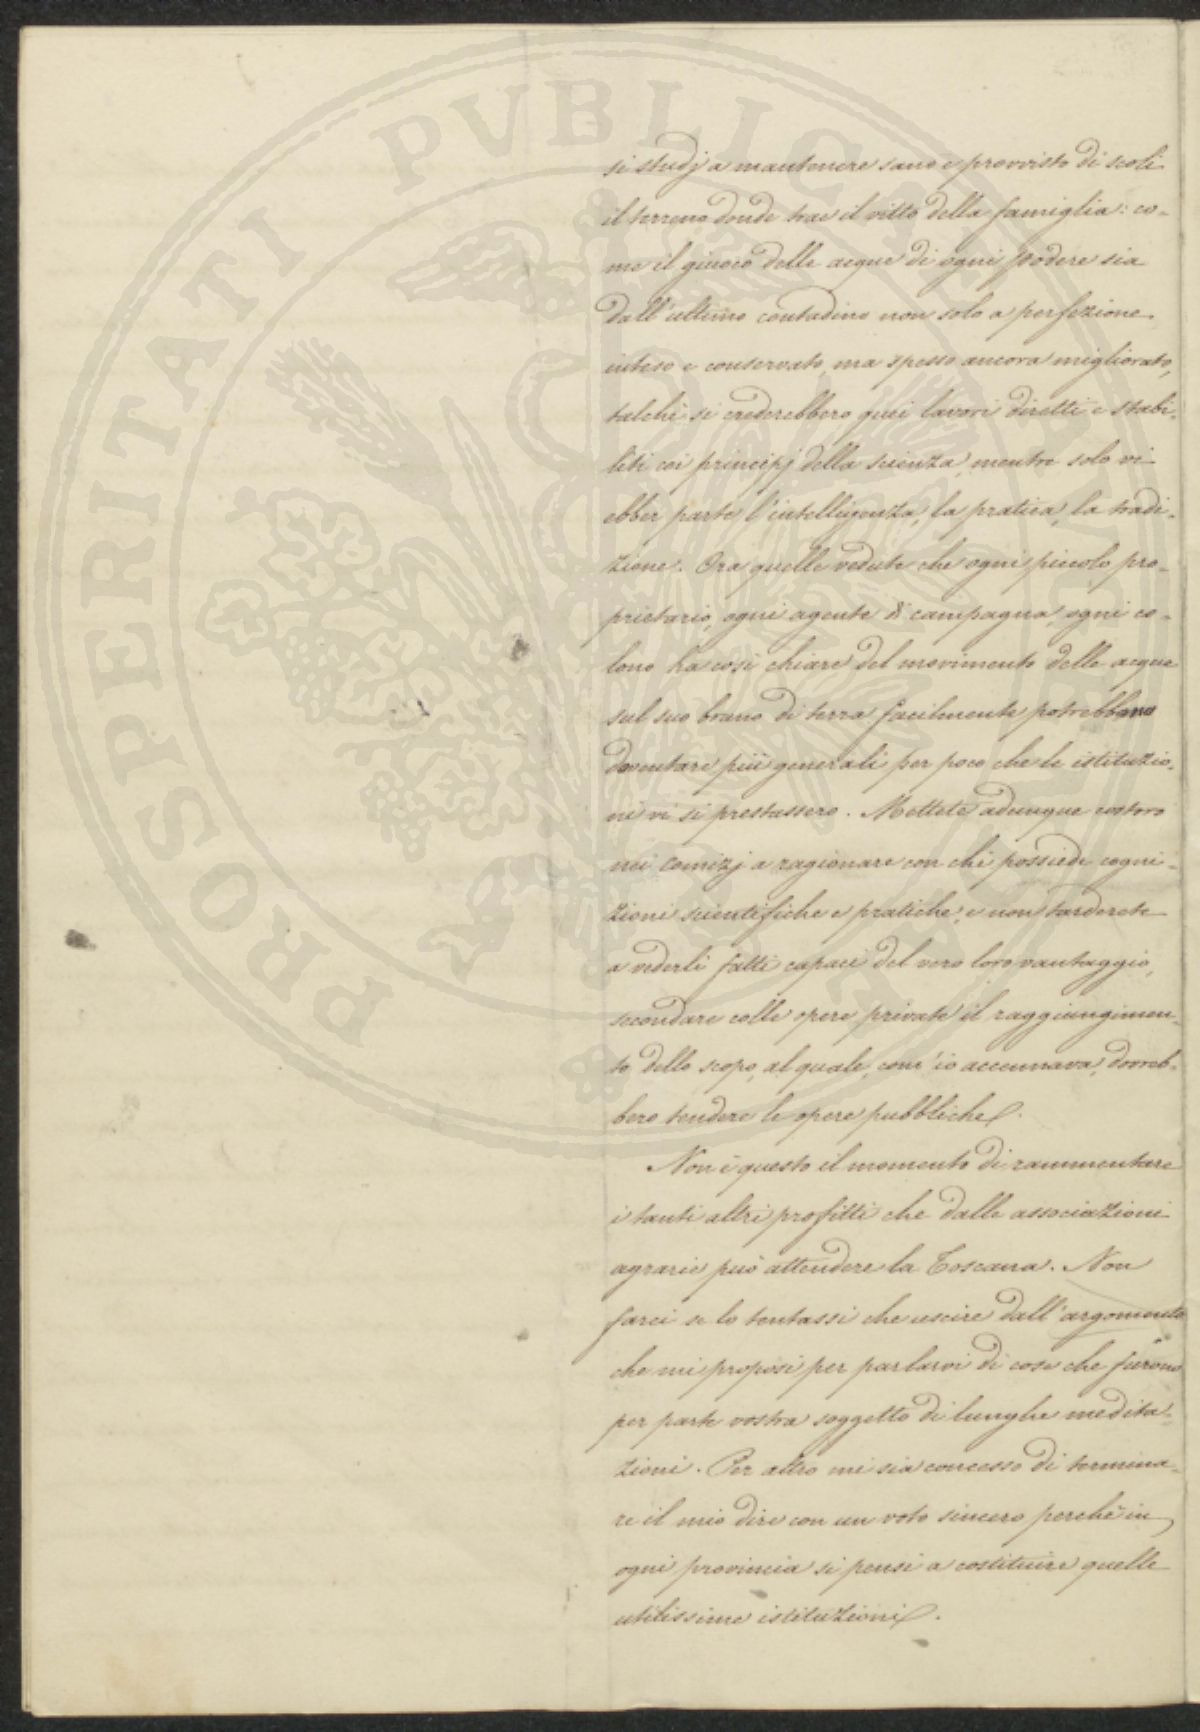 si studj a mantenere sano e provvisto di scoli
il terreno donde trae il vitto della famiglia: co-
me il giuoco delle acque di ogni podere sia
dall'ultimo contadino non solo a perfezione
inteso e conservato, ma spesso ancora migliorato,
talchè si crederebbero quei lavori diretti e stabi-
liti coi principj della scienza, mentre solo vi
ebber parte l'intelligenza, la pratica, la tradi-
zione. Ora quelle vedute che ogni piccolo pro-
prietario, ogni agente di campagna, ogni co-
lono ha così chiare del movimento delle acque
sul suo brano di terra facilmente potrebbero
diventare più generali per poco che le istituzio-
ni vi si prestassero. Mettete adunque costoro
nei Comizj a ragionare con chi possiede cogni-
zioni scientifiche e pratiche, e non tarderete
a vederli fatti capaci del vero loro vantaggio,
secondare colle opere private il raggiungimen-
to dello scopo, al quale, com'io accennava, dovreb-
bero tendere le opere pubbliche.
Non è questo il momento di rammentare
i tanti altri profitti che dalle associazioni
agrarie può attendere la Toscana. Non
farei se lo tentassi che uscire dall'argomento
che mi proposi per parlarvi di cose che furono
per parte vostra soggetto di lunghe medita-
zioni. Per altro mi sia concesso di termina-
re il mio dire con un voto sincero perchè in
ogni provincia si pensi a costituire quelle
utilissime istituzioni.
PROSPERITATI PUBLICAE